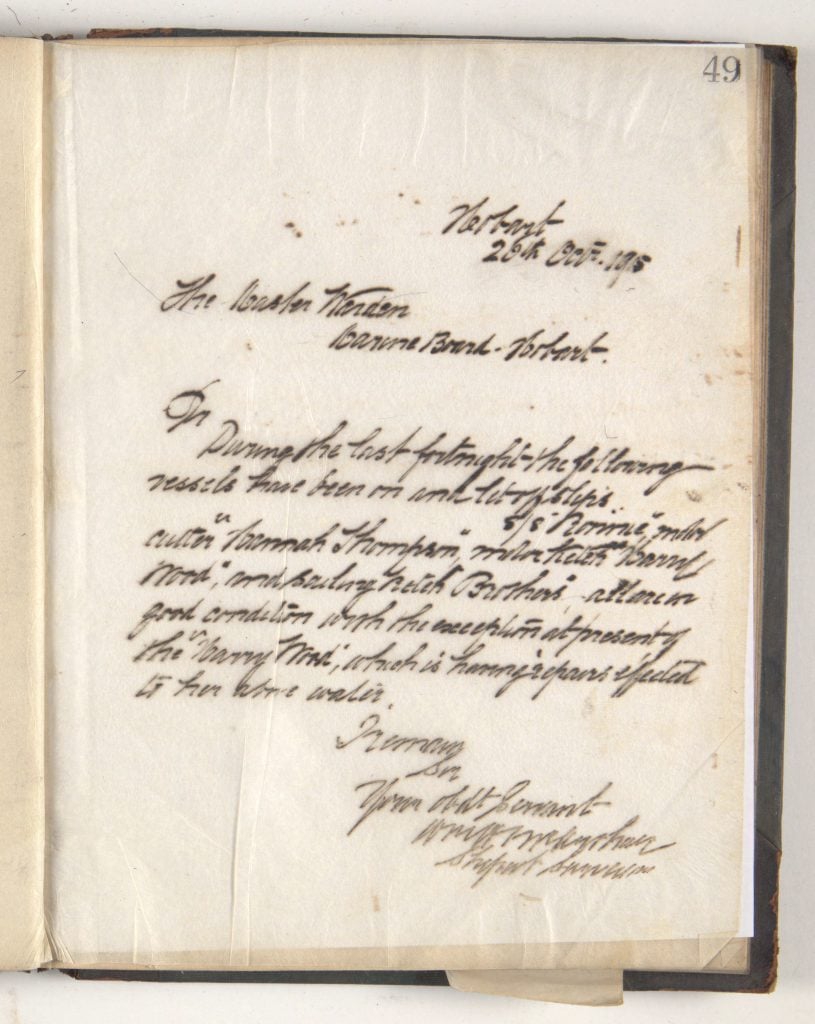 49
Hobart
28th Octr. 1915
The Master Warden
Marine Board - Hobart.
Sir
During the last fortnight the following
vessels have been on and let off slips.
s/s "Rowitta", motor
cutter "Hannah Thompson", motor ketch "Harry
Wood", and sailing ketch "Brothers", all are in
good condition with the exception at present of
the "Harry Wood", which is having repairs effected
to her above water.
I remain
Sir
Your obdt Servant
Shipwt Surveyor